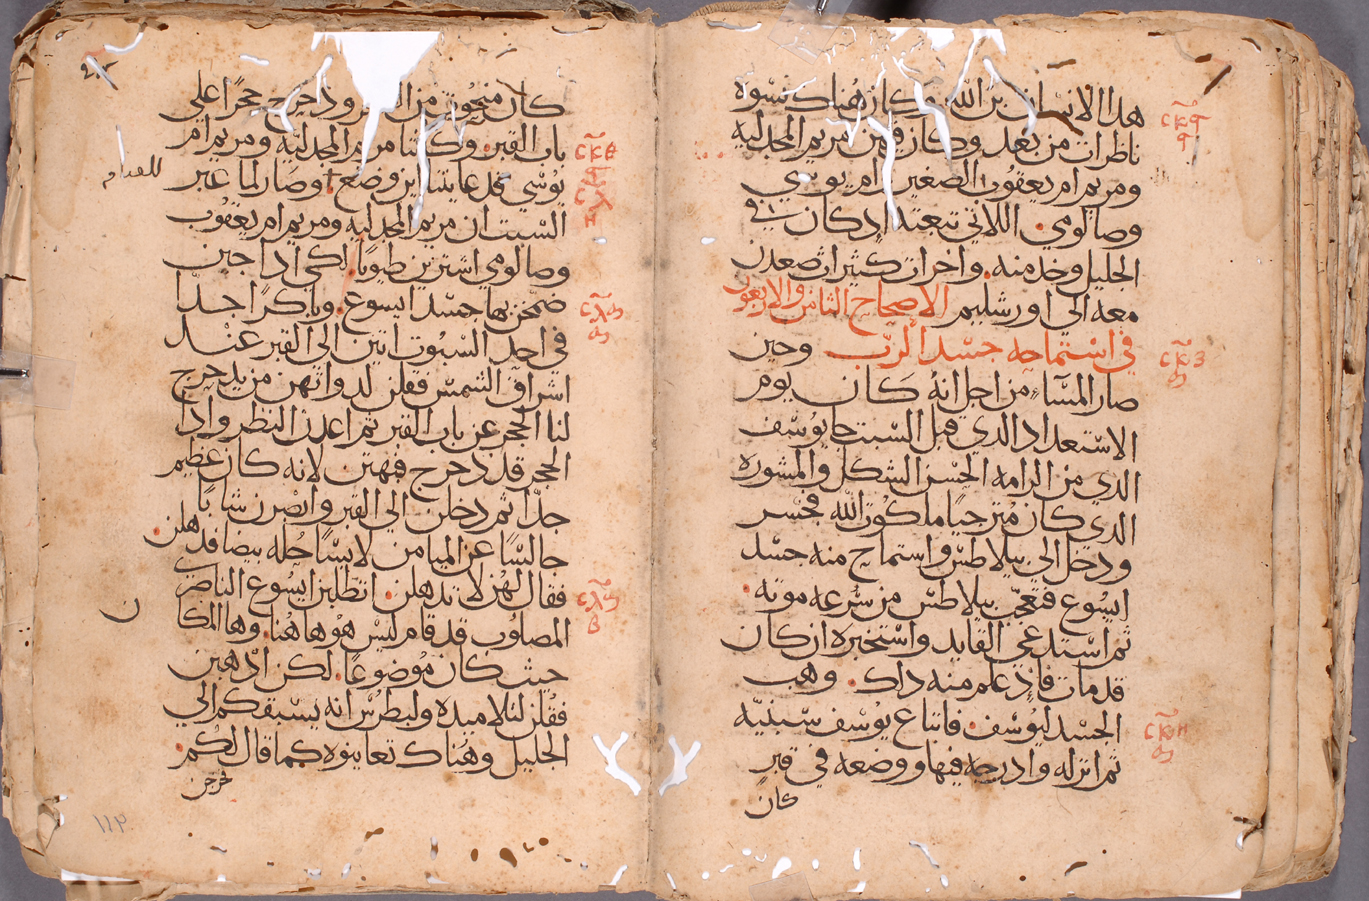 هدا الانسان بن الله وكان هناك نسوه
ناظرات من بعد وكان فيهن مريم المجدليه
ومريم ام يعقوب الصغير وام يوسي
وصالومي. اللاتي تبعنه اد كان في
الجليل وخدمنه. واخرات كثيرات صعدن
معه الي اورشليم الاصحاح الثامن والاربعون
في استماحه جسد الرب وحين
صار المسآء من اجل انه كان يوم
الاستعداد الدي قبل السبت جا يوسف
الدي من الرامه الحسن الشكل والمشوره
الدي كان مترجيا ملكوت الله فجسر
ودخل الي بيلاطس واستماح منه جسد
ايسوع فتعجب بيلاطس من سرعه موته.
ثم استدعي القايد واستخبره ان كان
قد مات فاد علم منه داك. وهب
الجسد ليوسف. فابتاع يوسف سبنيه
ثم انزله وادرجه فيها ووضعه في قبر
كان
كان منحوت من الصخر ودحرج حجرا علي
باب القبر. وكانتا مريم المجدليه ومريم ام
يوسي قد عاينتا اين وضع. وصار لما عبر
السبت ان مريم المجدليه ومريم ام يعقوب
وصالومي اشترين طيوبا. لكي ادا جين
ضمخن بها جسد ايسوع. وباكرا جدا
في احد السبوت اتين الي القبر عند
اشراق الشمس فقلن لدواتهن من يدحرج
لنا الحجر عن باب القبر ثم اعدن النظر وادا
الحجر قد دحرج فبهتن لانه كان عظيم
جدا ثم دخلن الي القبر وابصرن شابا
جالسا عن الميامن لابسا حله بيضا فدهلن.
فقال لهن لا تدهلن. اتطلبن ايسوع الناصري
المصلوب قد قام ليس هو هاهنا. وها المكا
ن
حيث كان موضوعا. لكن ادهبن
فقلن لتلاميده ولبطرس انه يسبقكم الي
الجليل وهناك تعاينوه كما قال لكم.
فخرجن
١١٢